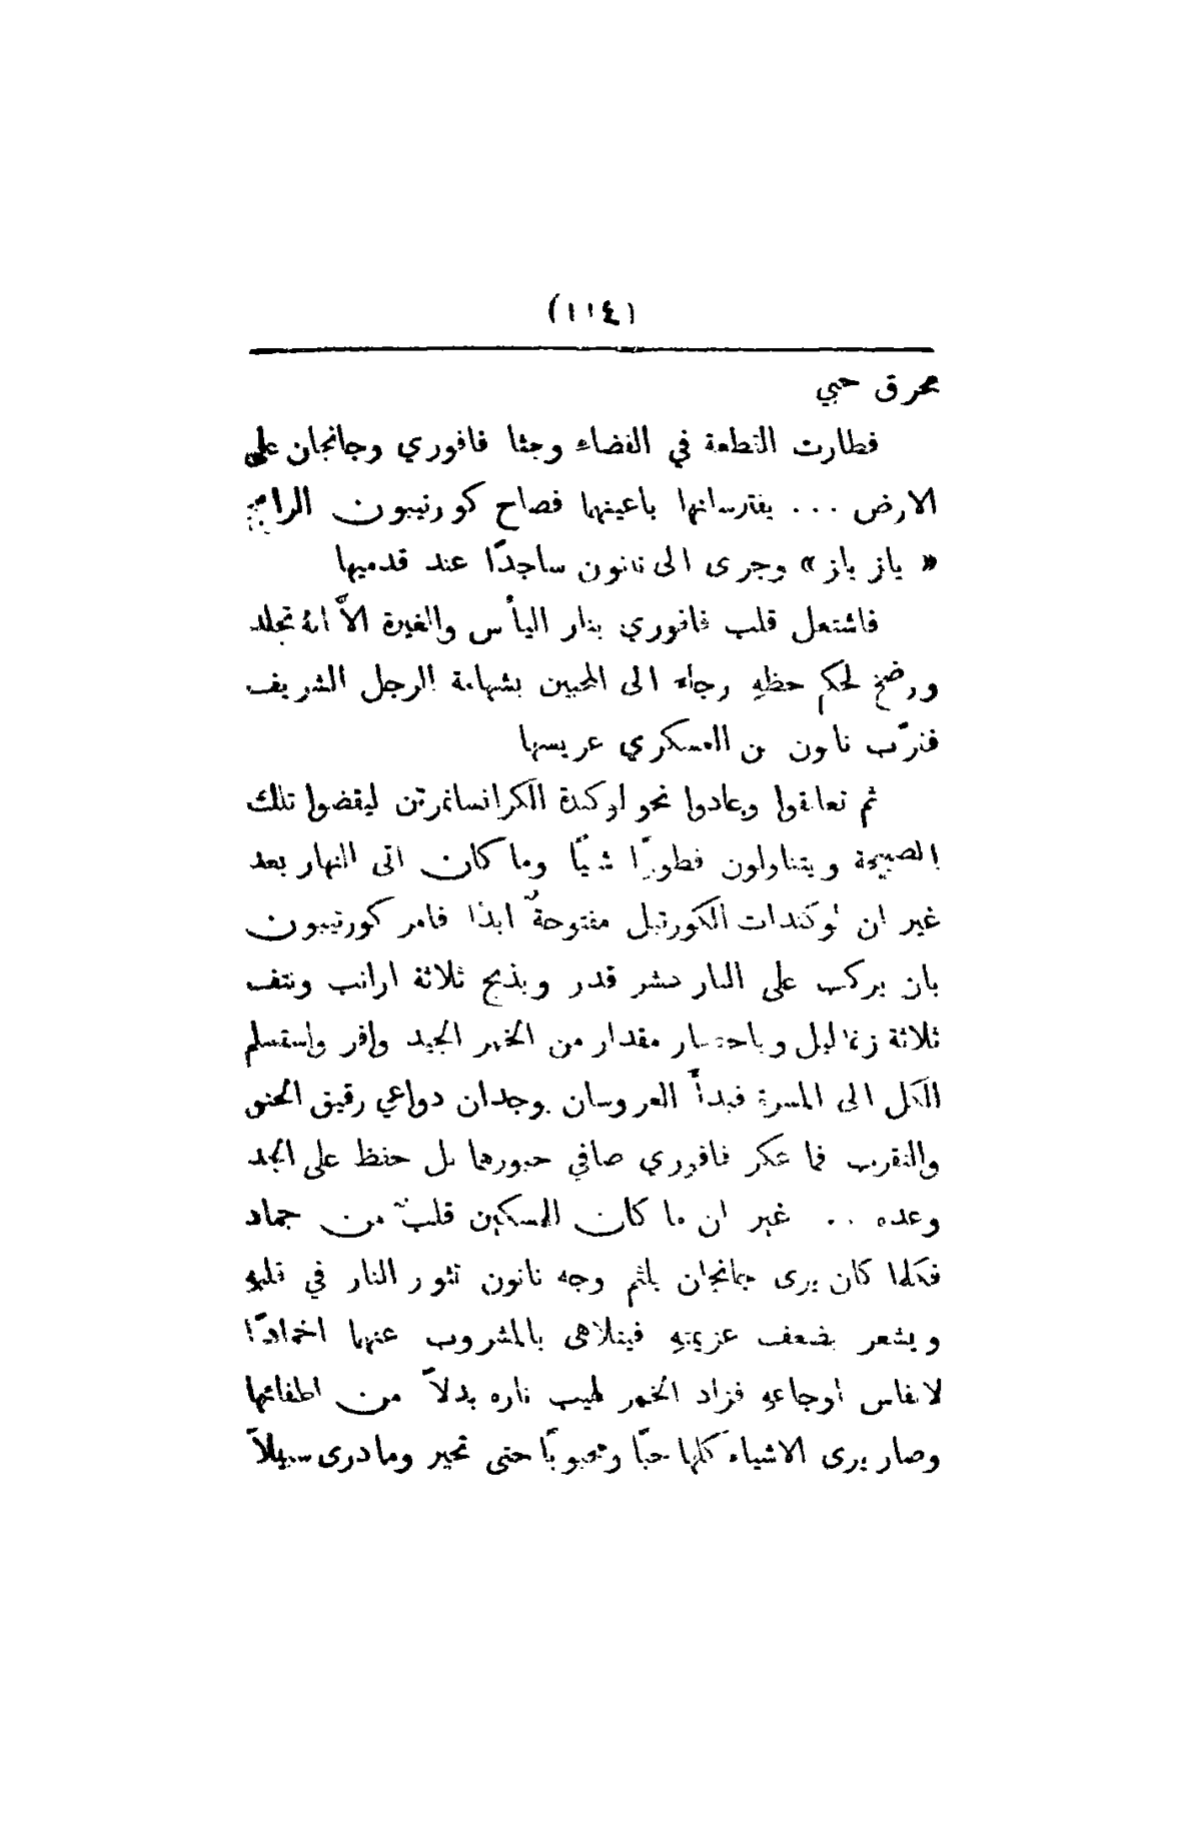 (١١٤)
محرق حبي
فطارت القطعة في الفضاء وجثا فافوري وجانجان على
الارض ... يفترسانها باعينهما فصاح كورنيبون الرامح
« باز باز » وجرى الى نانون ساجدًا عند قدميها
فاشتعل قلب فافوري بنار اليأس والغيرة الاَّ انهُ تجلد
ورضخ لحكم حظهِ وجاء الى المحبين بشهامة الرجل الشريف
فقرَّب نانون من العسكري عريسها
ثم تعانقوا وعادوا نحو لوكندة الكرانسانمرتن ليقضوا تلك
الصبيحة ويتناولون فطورًا شهيًّا وما كان اتى النهار بعد
غير ان لوكندات الكورتيل مفتوحةٌ ابدًا فامر كورنيبون
بان يركب على النار عشر قدر ويذبح ثلاثة ارانب وينتف
ثلاثة زغاليل وباحضار مقدار من الخمر الجيد وافر واستسلم
الكل الى المسرة فبدأَ العروسان يوجدان دواعي رقيق الحنو
والتقرب فما عكر فافوري صافي حبورهما بل حفظ على الجد
وعده .. غير ان ما كان المسكين قلبهُ من جماد
فكلما كان يرى جانجان يلثم وجه نانون تثور النار في قلبهِ
ويشعر بضعف عزيمتهِ فيتلاهى بالمشروب عنهما اخمادًا
لانفاس اوجاعهِ فزاد الخمر لهيب ناره بدلاً من اطفائها
وصار يرى الاشياء كلها حبًّا ومحبوبًا حتى تحير وما درى سبيلاً